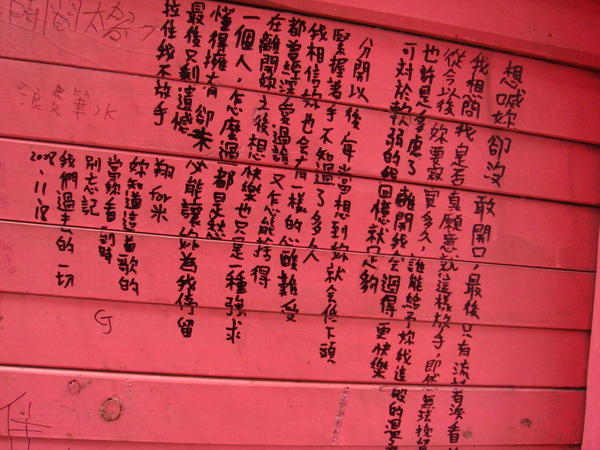 想喊妳卻沒敢開口,最後只有流著淚看
我想問我是否真願意就這樣放手,即然無法挽留
從今以後妳要寂寞多久,誰能給予妳我這般的溫
也許是多慮了離開我會過得更快樂
可對於軟弱的我回憶就足夠
分開以後每當想到妳就會低下頭
緊握著手不知過了多久
我相信妳也會有一樣的心酸難受
都曾經深愛過誰又怎能捨得
在離開妳之後想快樂也只是一種強求
一個人,怎麼過都是愁
懂得擁有卻未必能讓妳為我停留
最後又剩遺憾
拉住我不放手
翔 for 米
妳知道這首歌的
當妳看到時
別忘記
我們過去的一切
2008.11.18
G
浪費筆水